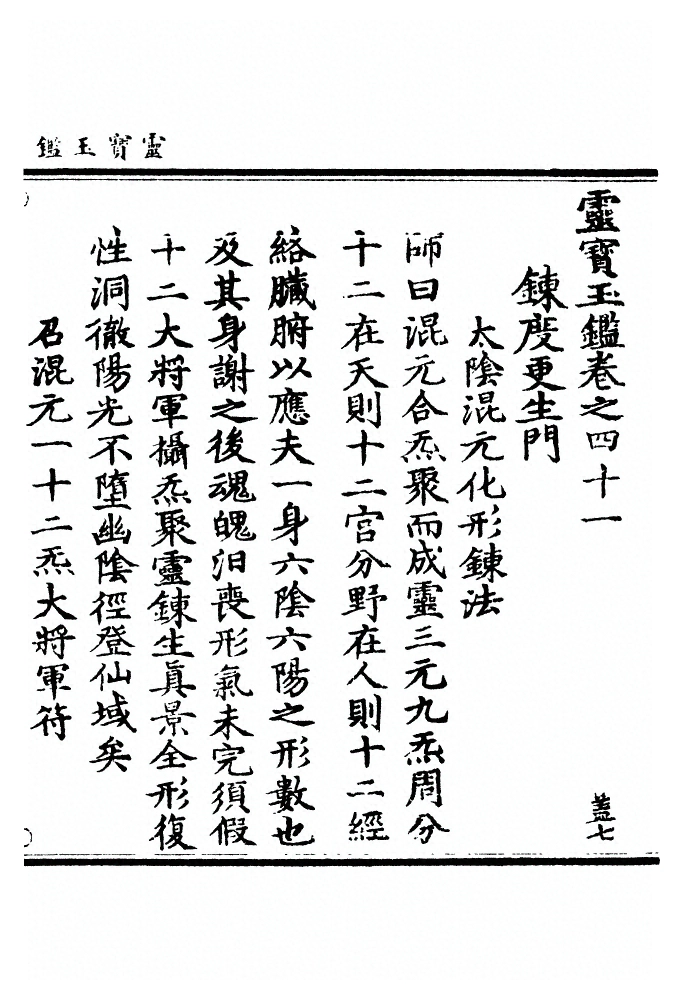 靈寶玉鑑
靈寶玉鑑卷之四十一
蓋七
鍊度更生門
太陰混元化形鍊法
師曰混元合炁聚而成靈三元九炁周分
十二在天則十二宫分野在人則十二經
絡臟腑以應夫一身六陰六陽之形數也
及其身謝之後魂魄汩喪形氣未完須假
十二大將軍攝炁聚靈鍊生真景全形復
性洞徹陽光不墮幽陰徑登仙域矣
召混元一十二炁大將軍符